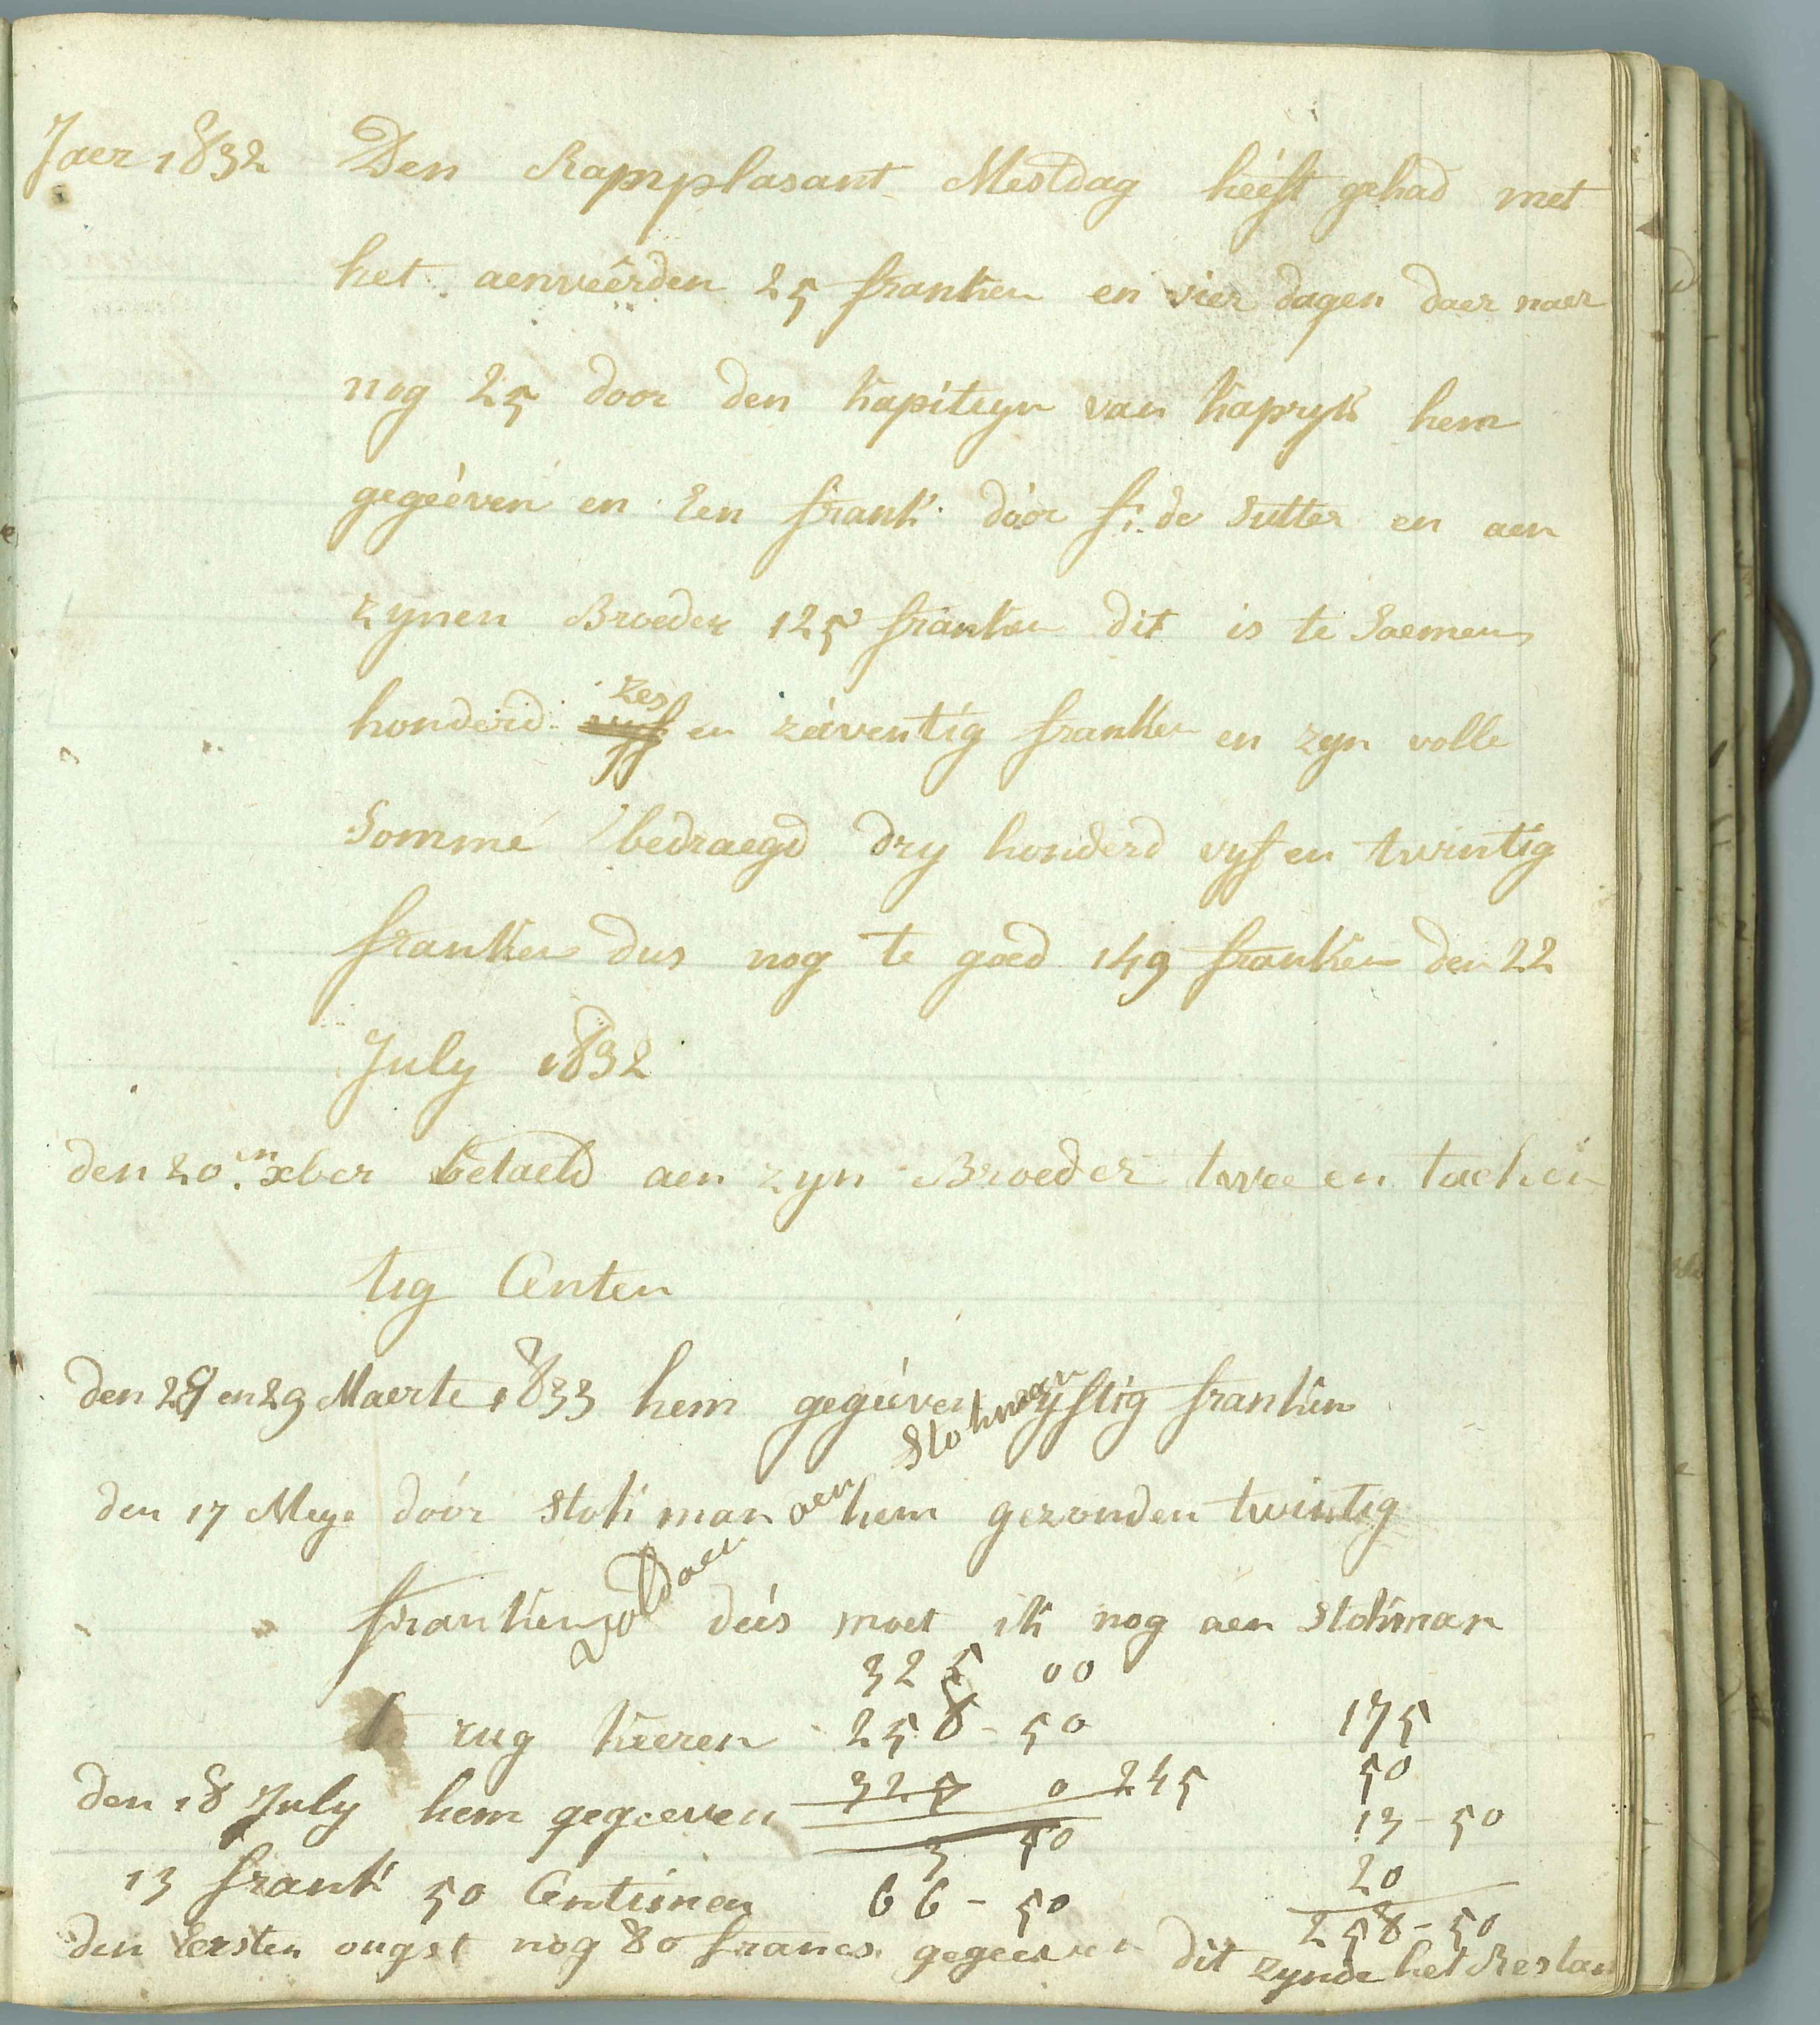 Jaer 1832 Den Rampplasant Mestdag hééft gehad met
het aenveêrden 25 franken en vier dagen daer naer
nog 25 door den kapiteyn van kapryk hem
gegééven en Een frank door f: de Sutter en aen
zynen Broeder 125 franken dit is te Saemen
honderd vyf zes en zéventig franken en zyn volle
Sommé bedraegd dry honderd vyf en twintig
franken dus nog te goed 149 franken den 22
July 1832
den 20.en xber betaeld aen zyn Broeder twee en tachen
tig Centen
den 28 en 29 Maerte 1833 hem gegéeven vyftig franken
den 17 Meye dóór stokman aen hem gezonden twintig
voldaen aen Stokman
franken dees moet ik nog aen stokman
325 00
te rug keeren 258 - 50 175
50
den 18 July hem gegeeven 325 0 245
13 - 50
3 50
20
13 frank 50 Centimen 66 - 50
258 - 50
den Eersten ougst nog 80 francs gegeeven dit zynde het Restan